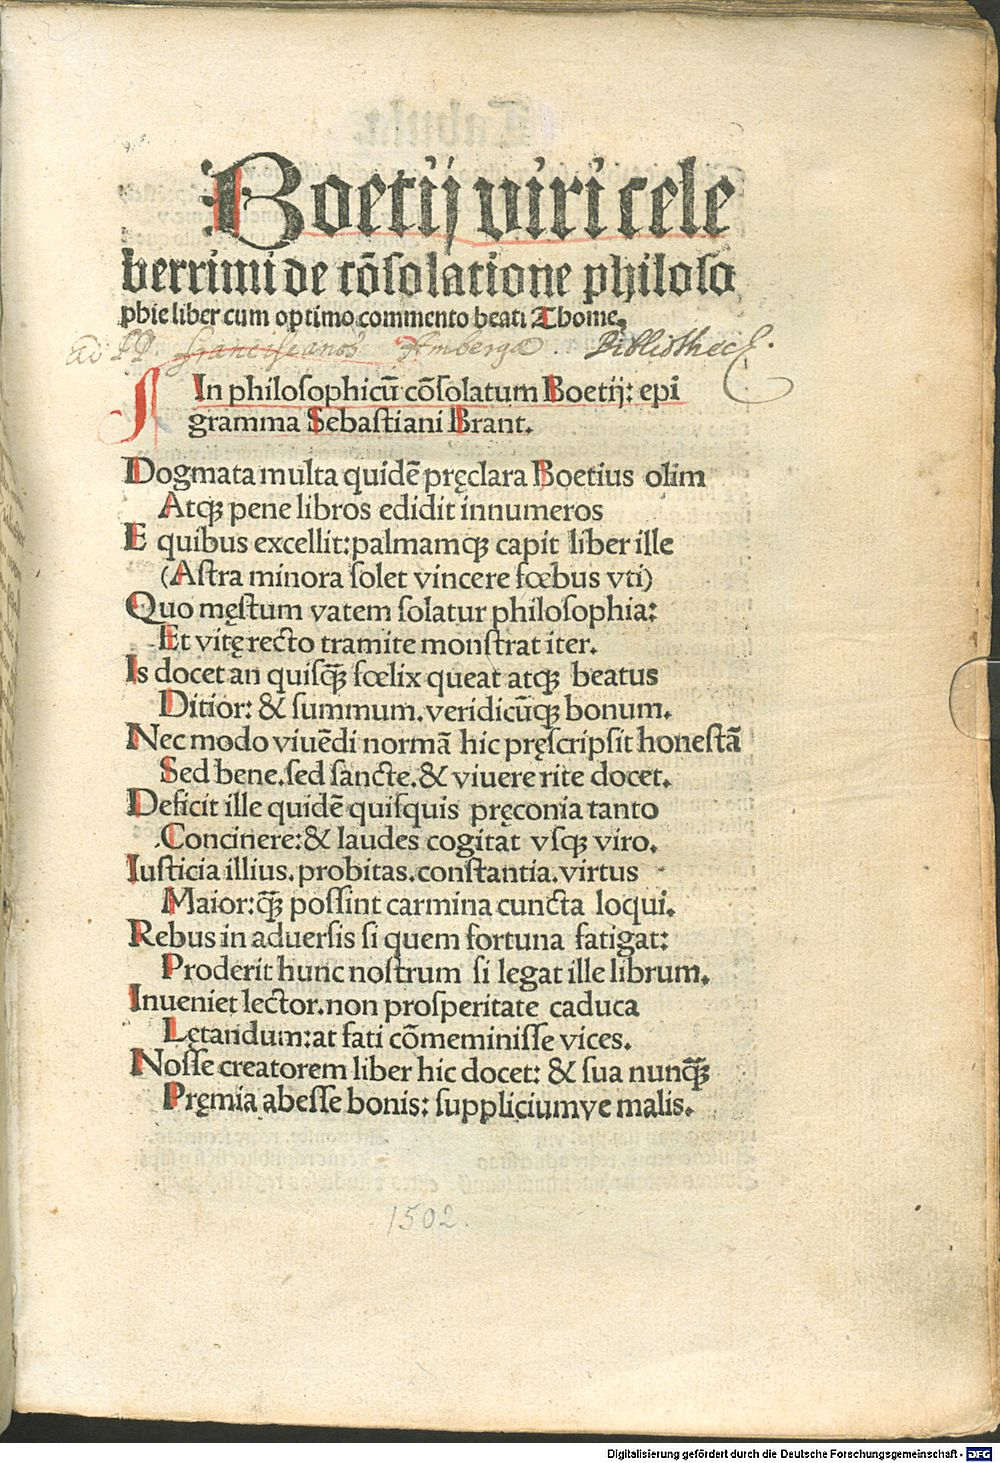 Boetij viri cele
berrimi de cōsolatione philoso
phie liber cum optimo commento beati Thome.
ad PP. Franciscanos Ambergæ. Bibliothecę.
In philosophicū cōsolatum Boetij: epi
gramma Sebastiani Brant.
Dogmata multa quidē pręclara Boetius olim
Atqꝫ pene libros edidit innumeros
E quibus excellit: palmamqꝫ capit liber ille
(Astra minora solet vincere fœbus vti)
Quo męstum vatem solatur philosophia:
Et vitę recto tramite monstrat iter.
Is docet an quisqꝫ̄ fœlix queat atqꝫ beatus
Ditior: & summum. veridicūqꝫ bonum.
Nec modo viuēdi normā hic pręscripsit honestā
Sed bene. sed sancte. & viuere rite docet.
Deficit ille quidē quisquis pręconia tanto
Concinere: & laudes cogitat vsqꝫ viro.
Iusticia illius. probitas. constantia. virtus
Maior: qꝫ̄ possint carmina cuncta loqui.
Rebus in aduersis si quem fortuna fatigat:
Proderit hunc nostrum si legat ille librum.
Inueniet lector. non prosperitate caduca
Lętandum: at fati cōmeminisse vices.
Nosse creatorem liber hic docet: & sua nunqꝫ̄
Pręmia abesse bonis: suppliciumve malis.
1502.
Digitalisierung gefördert durch die Deutsche Forschungsgemeinschaft - DFG